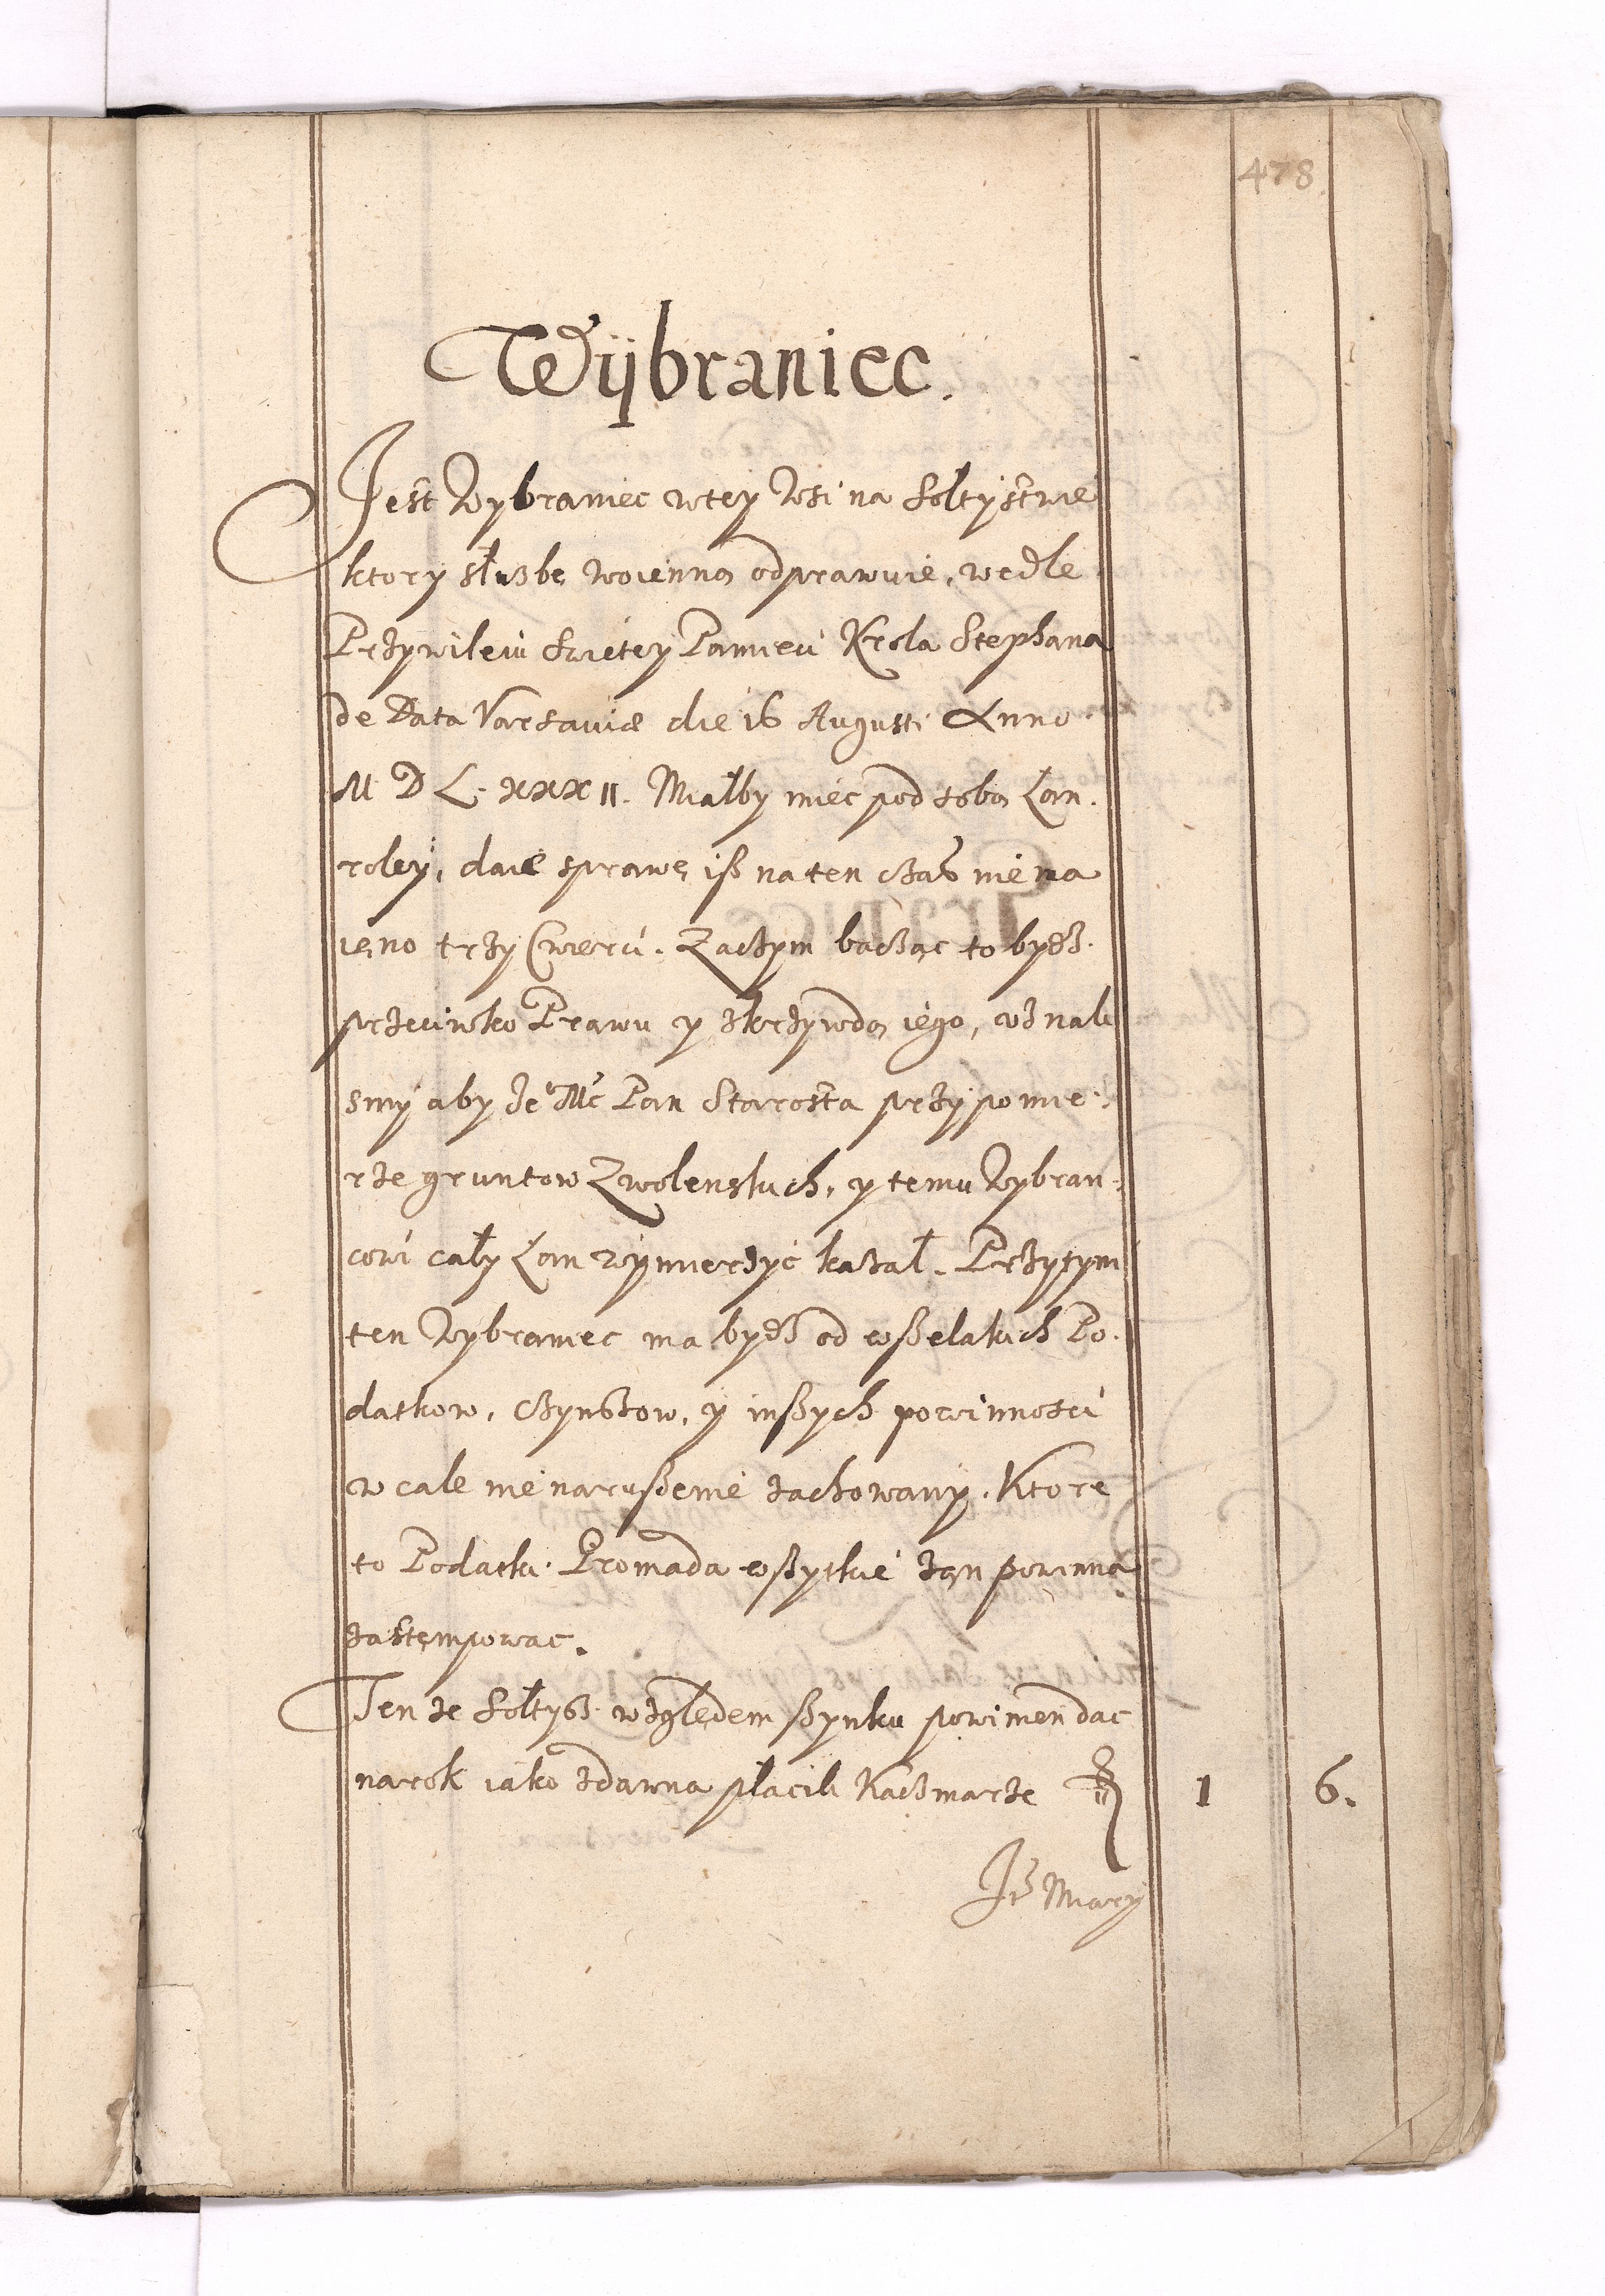 478
Wÿbraniec.
Jest Wybraniec wtey Wsi na Sołtystwie
ktory służbę woienną odprawuie, wedle
Przywileiu Swietey Pamieci Krola Stephana
de Data Varsauiæ die 16 Augusti Anno
M D L xxx II. Miałby miec pod sobą Łan
roley, daie sprawę iß na ten czas nie ma
ieno trzy Cwierci. Zaczym bacząc to bydz
przeciwko Prawu y zkrzywdą iego, wznali
smy aby Je Mc Pan Starosta przypomie:
rze gruntow Zwolenskich, y temu Wybran:
cowi cały Łan wymierzyc kazał. Przytym
ten Wybraniec ma bydz od wßelakich Po.
datkow, Czynszow, y inßych powinnosci
w cale nie narußenie zachowany. Ktore
to Podatki Gromada wßytkie zań powinna
zastempowac.
Ten ze Sołtys względem ßynku powinien dac
na rok iako zdawna płacili Kaczmarze 1 6.
Mary